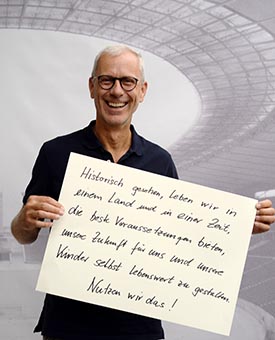 Historisch gesehen, leben wir in
einem Land und in einer Zeit,
die beste Voraussetzungen bieten,
unsere Zukunft für uns und unsere
Kinder selbst lebenswert zu gestalten.
Nutzen wir das!